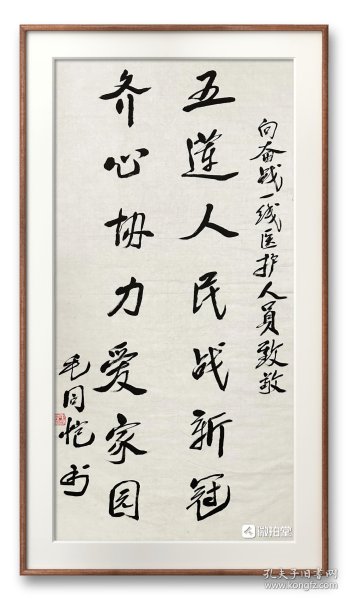 向奋战一线医护人员致敬
五莲人民战新冠
齐心协力爱家园
毛同恺书
微拍堂
孔夫子旧书网
www.kongfz.com